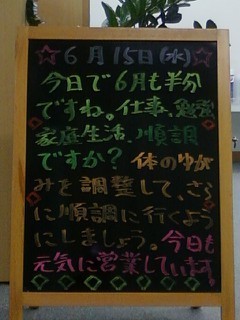 ☆6月15日(水)☆
今日で6月も半分
ですね。仕事、勉強
家庭生活、順調
ですか? 体のゆが
みを調整して、さら
に順調に行くよう
にしましょう。今日も
元気に営業しています。